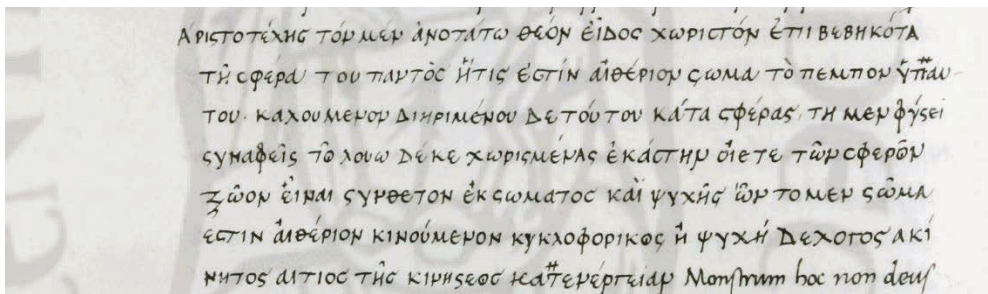 ἈΡΙϹΤΟΤΈΛΗϹ ΤΌΝ ΜΈΝ ἈΝΟΤΆΤΩ ΘΕΌΝ ΕἾΔΟϹ ΧΩΡΙϹΤΌΝ ἘΠΙΒΕΒΗΚΌΤΑ
ΤΗ͂ ϹΦΈΡΑ ΤΟΥ ΠΑΝΤῸϹ ἭΤΙϹ ἘϹΤΊΝ ΑἸΘΈΡΙΟΝ ϹΩΜΑ ΤῸ ΠΕΜΠΟΝ ὙΠ ΑΥ-
ΤΟΥ· ΚΑΛΟΥΜΕΝΟΝ ΔΙΗΡΙΜΈΝΟΥ ΔΕ ΤΟΎΤΟΥ ΚΆΤΑ ϹΦΈΡΑϹ, ΤΗ ΜΕΝ ΦΎϹΕΙ
ϹΥΝΑΦΕΙ͂Ϲ ΤΩ͂ ΛΟΥΩ ΔΈ ΚΕ ΧΩΡΙϹΜΈΝΑϹ ἙΚΆϹΤΗΝ ΟἼΕΤΕ ΤΩ͂Ν ϹΦΕΡΩ͂Ν
ΖΩ͂ΟΝ ΕἾΝΑΙ ϹΎΝΘΕΤΟΝ ἘΚ ϹΩΜΑΤΟϹ ΚΑῚ ΨΥΧΗ͂Ϲ ὯΝ ΤΟ ΜΕΝ ϹΩ͂ΜΑ
ΕϹΤΙΝ ΑἸΘΈΡΙΟΝ ΚΙΝΟΎΜΕΝΟΝ ΚΥΚΛΟΦΟΡΙΚΟϹ Ἡ ΨΥΧΉ ΔΕ ΛΟΓΟϹ ΑΚΊ
ΝΗΤΟϹ ΑΙΤΙΟϹ ΤΗ͂Ϲ ΚΙΝΗϹΕΟϹ ΚΑΤ ΕΝΈΡΓΕΙΑΝ Monſtrum hoc non deuſ